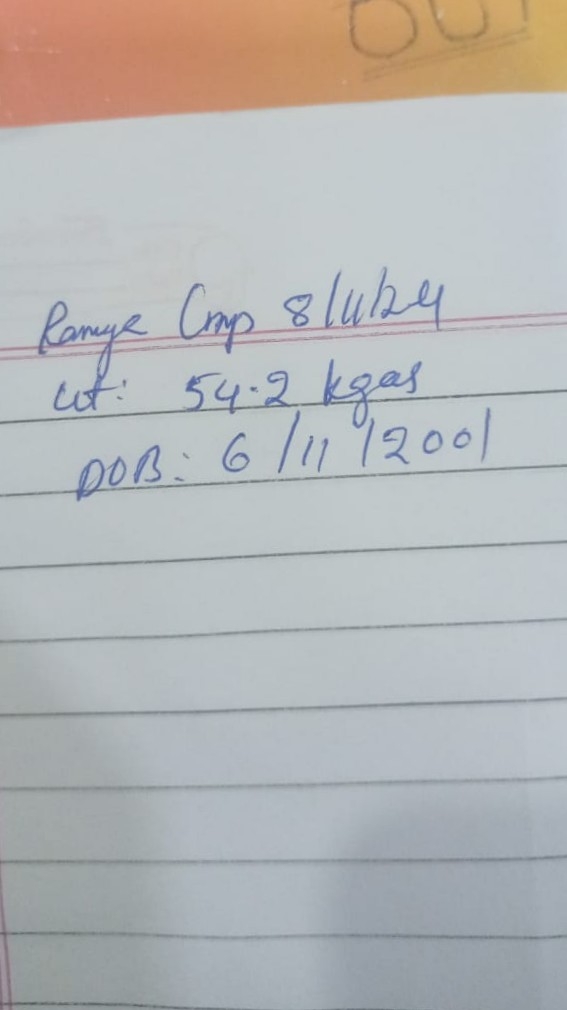 OUT
Range Cmp 8/11/24
wt: 54.2 kgas
DOB: 6/11/2001